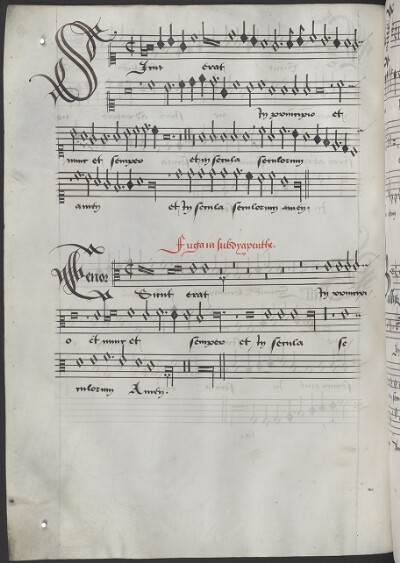 Sicut erat
In principio et
nunc et semper et in secula seculorum
amen et In secula seculorum amen.
Fuga in subdyapenthe.
Tenor Sicut erat In principi
o et nunc et semper et In secula se
culorum Amen.